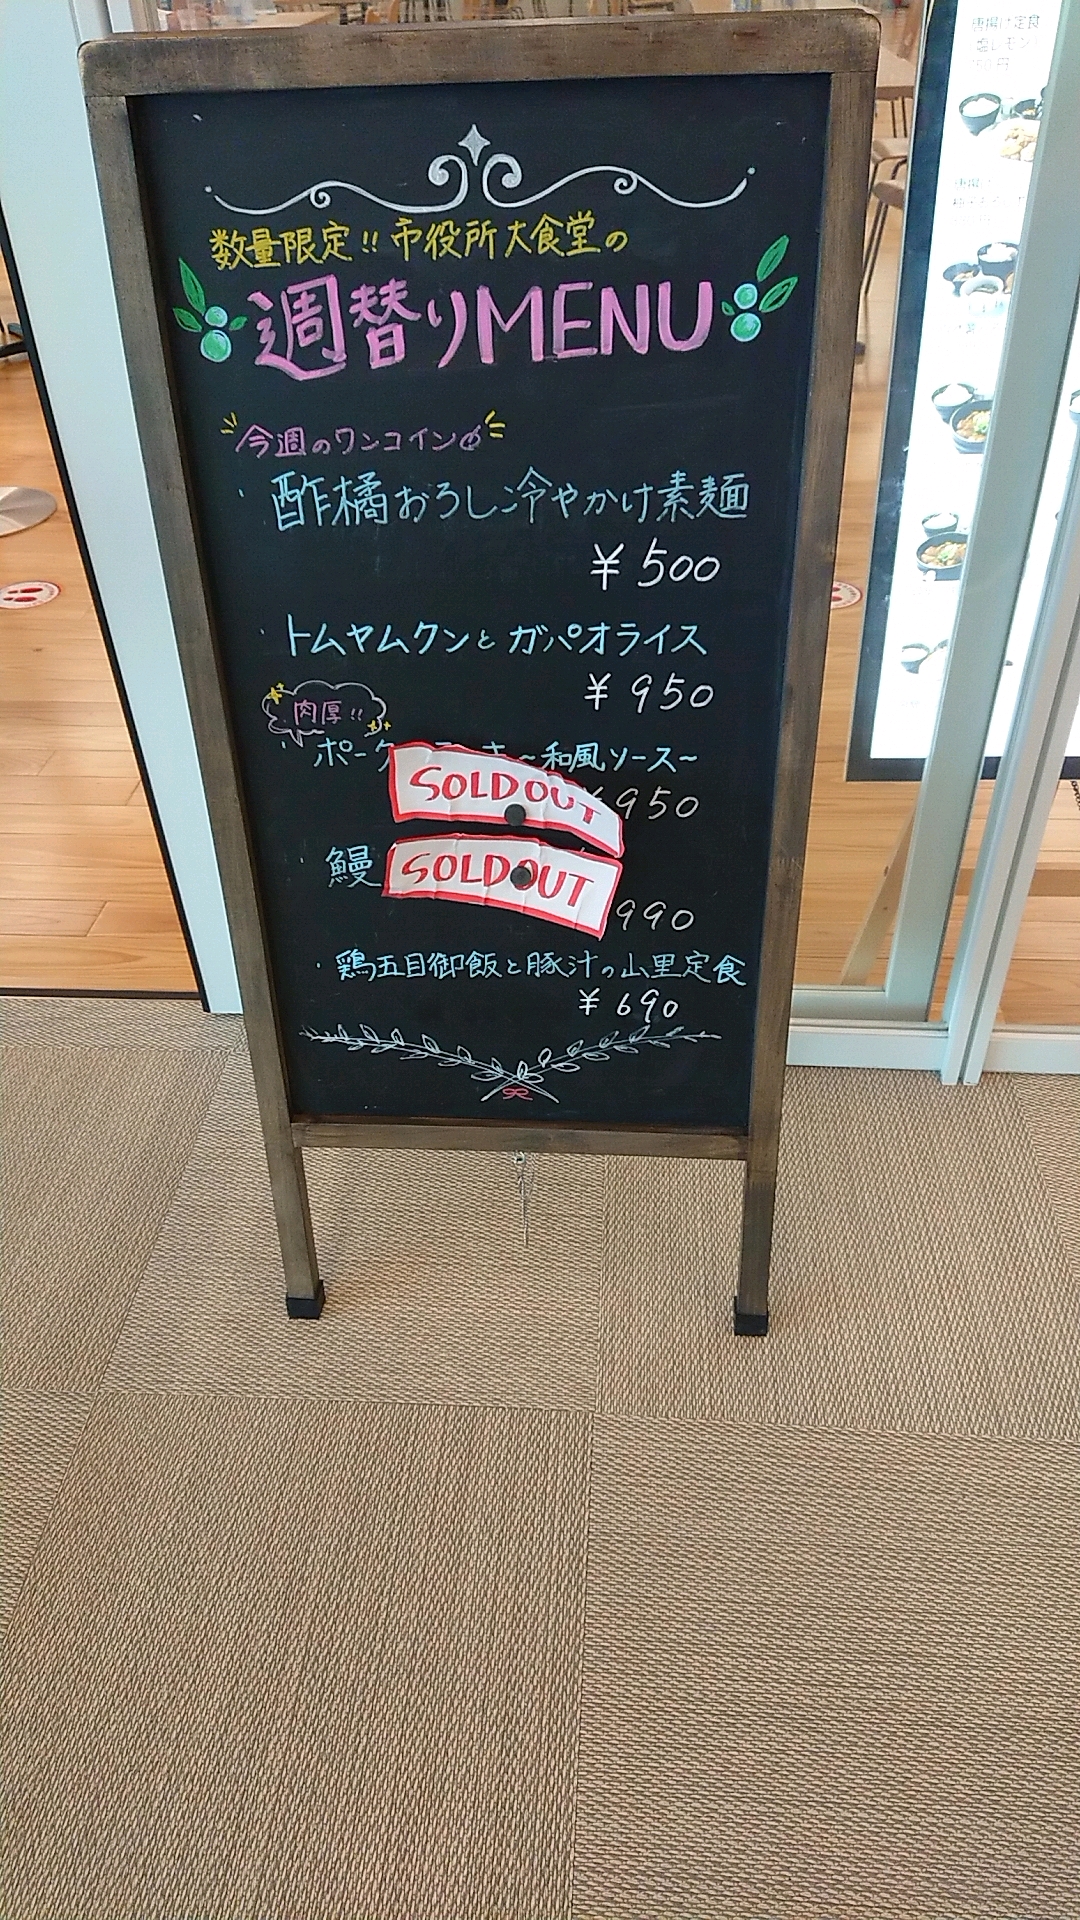 数量限定!! 市役所大食堂の
週替りMENU
今週のワンコイン
・酢橘おろし冷やかけ素麺
¥500
・トムヤムクンとガパオライス
¥950
肉厚!!
・ポーク ~和風ソース~
SOLDOUT
¥950
・鰻
SOLDOUT
990
・鶏五目御飯と豚汁の山里定食
¥690
唐揚げ定食